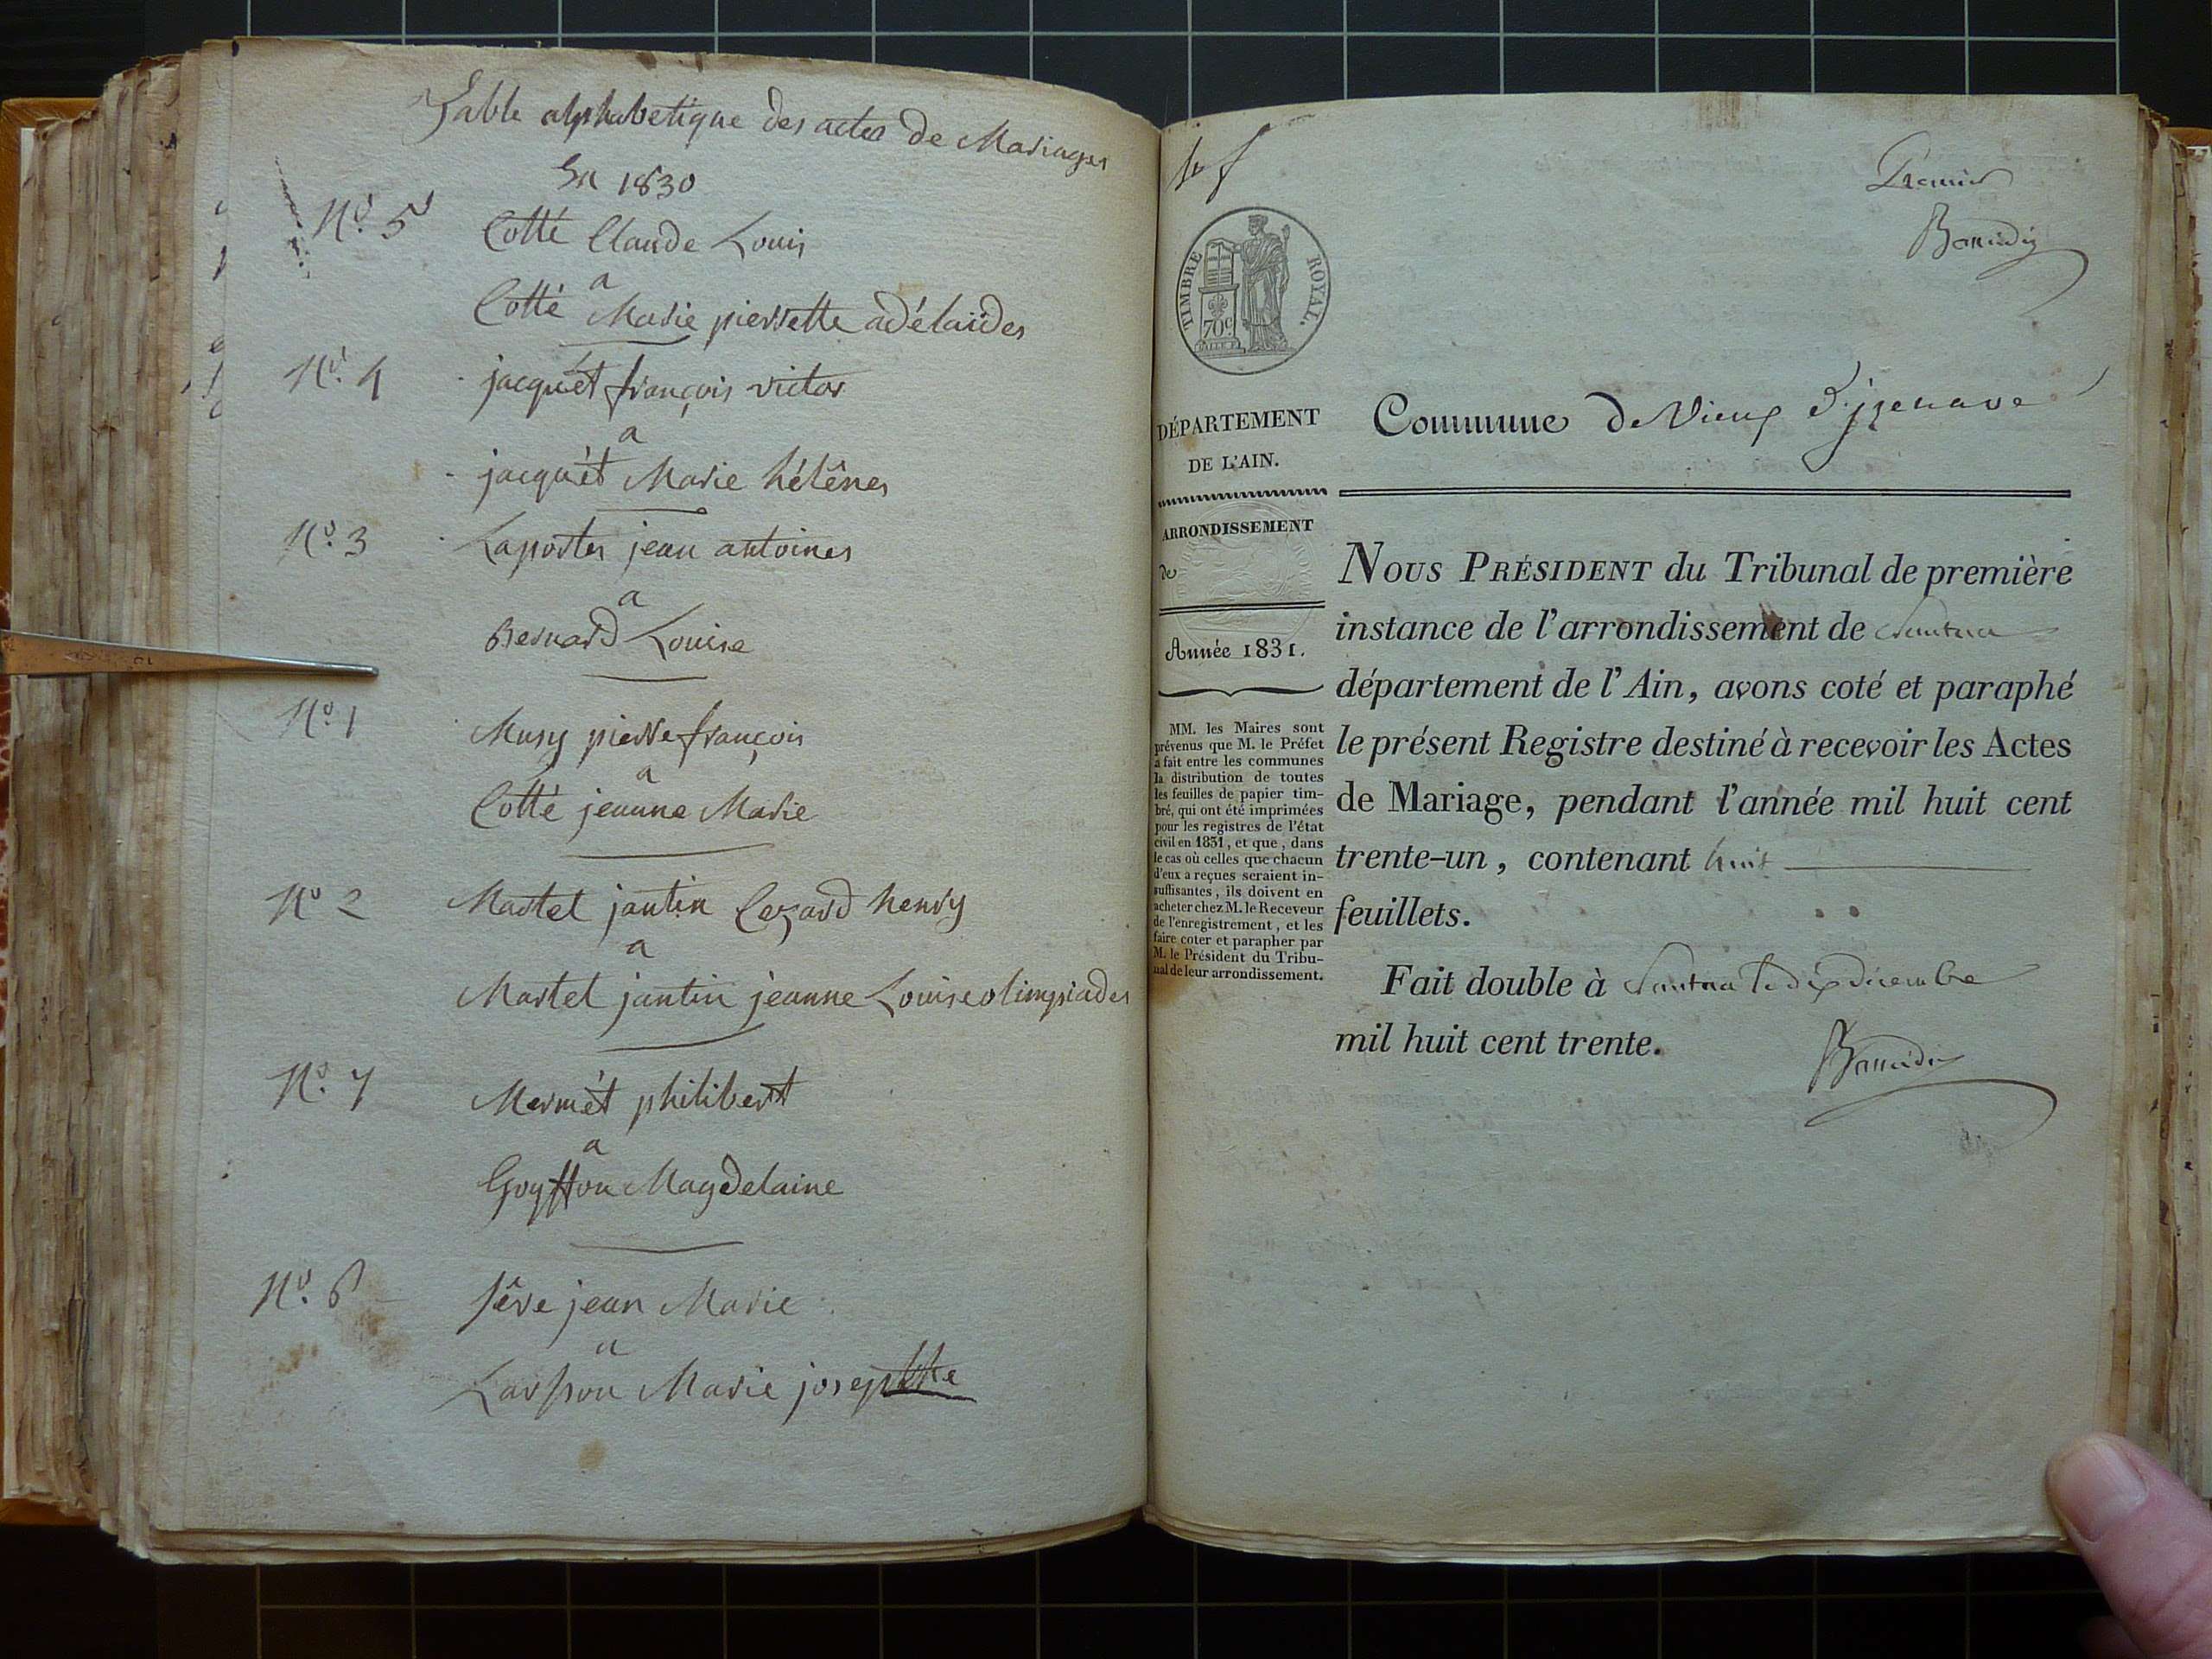 Table alphabetique des actes de Mariages
En 1830
No. 5 Cotté Claude Louis
a
Cotté Marie pierrette adélaïdes
No. 4 jacquét françois victor
a
jacquét Marie hélênes
No. 3 Laportes jean antoines
a
Bernard Louise
No. 1 Musy pierre françois
a
Cotté jeanne Marie
No 2 Martel jantin Cezard henry
a
Martel jantin jeanne Louise olimpiades
No. 7 Mermét philibert
a
Goyffon Magdelaine
No. 6 Sêve jean Marie
a
Marie josephte
1er f
Premier
TIMBRE ROYAL.
70c
DÉPARTEMENT
DE L'AIN.
ARRONDISSEMENT
de
Année 1831.
MM. les Maires sont
prévenus que M. le Préfet
a fait entre les communes
la distribution de toutes
les feuilles de papier tim-
bré, qui ont été imprimées
pour les registres de l'état
civil en 1831, et que, dans
le cas où celles que chacun
d'eux a reçues seraient in-
suffisantes, ils doivent en
acheter chez M. le Receveur
de l'enregistrement, et les
faire coter et parapher par
M. le Président du Tribu-
nal de leur arrondissement.
Commune de Vieux d'izenave
NOUS PRÉSIDENT du Tribunal de première
instance de l'arrondissement de Nantua
département de l'Ain, avons coté et paraphé
le présent Registre destiné à recevoir les Actes
de Mariage, pendant l'année mil huit cent
trente-un, contenant huit
feuillets.
Fait double à Nantua le dix décembre
mil huit cent trente.